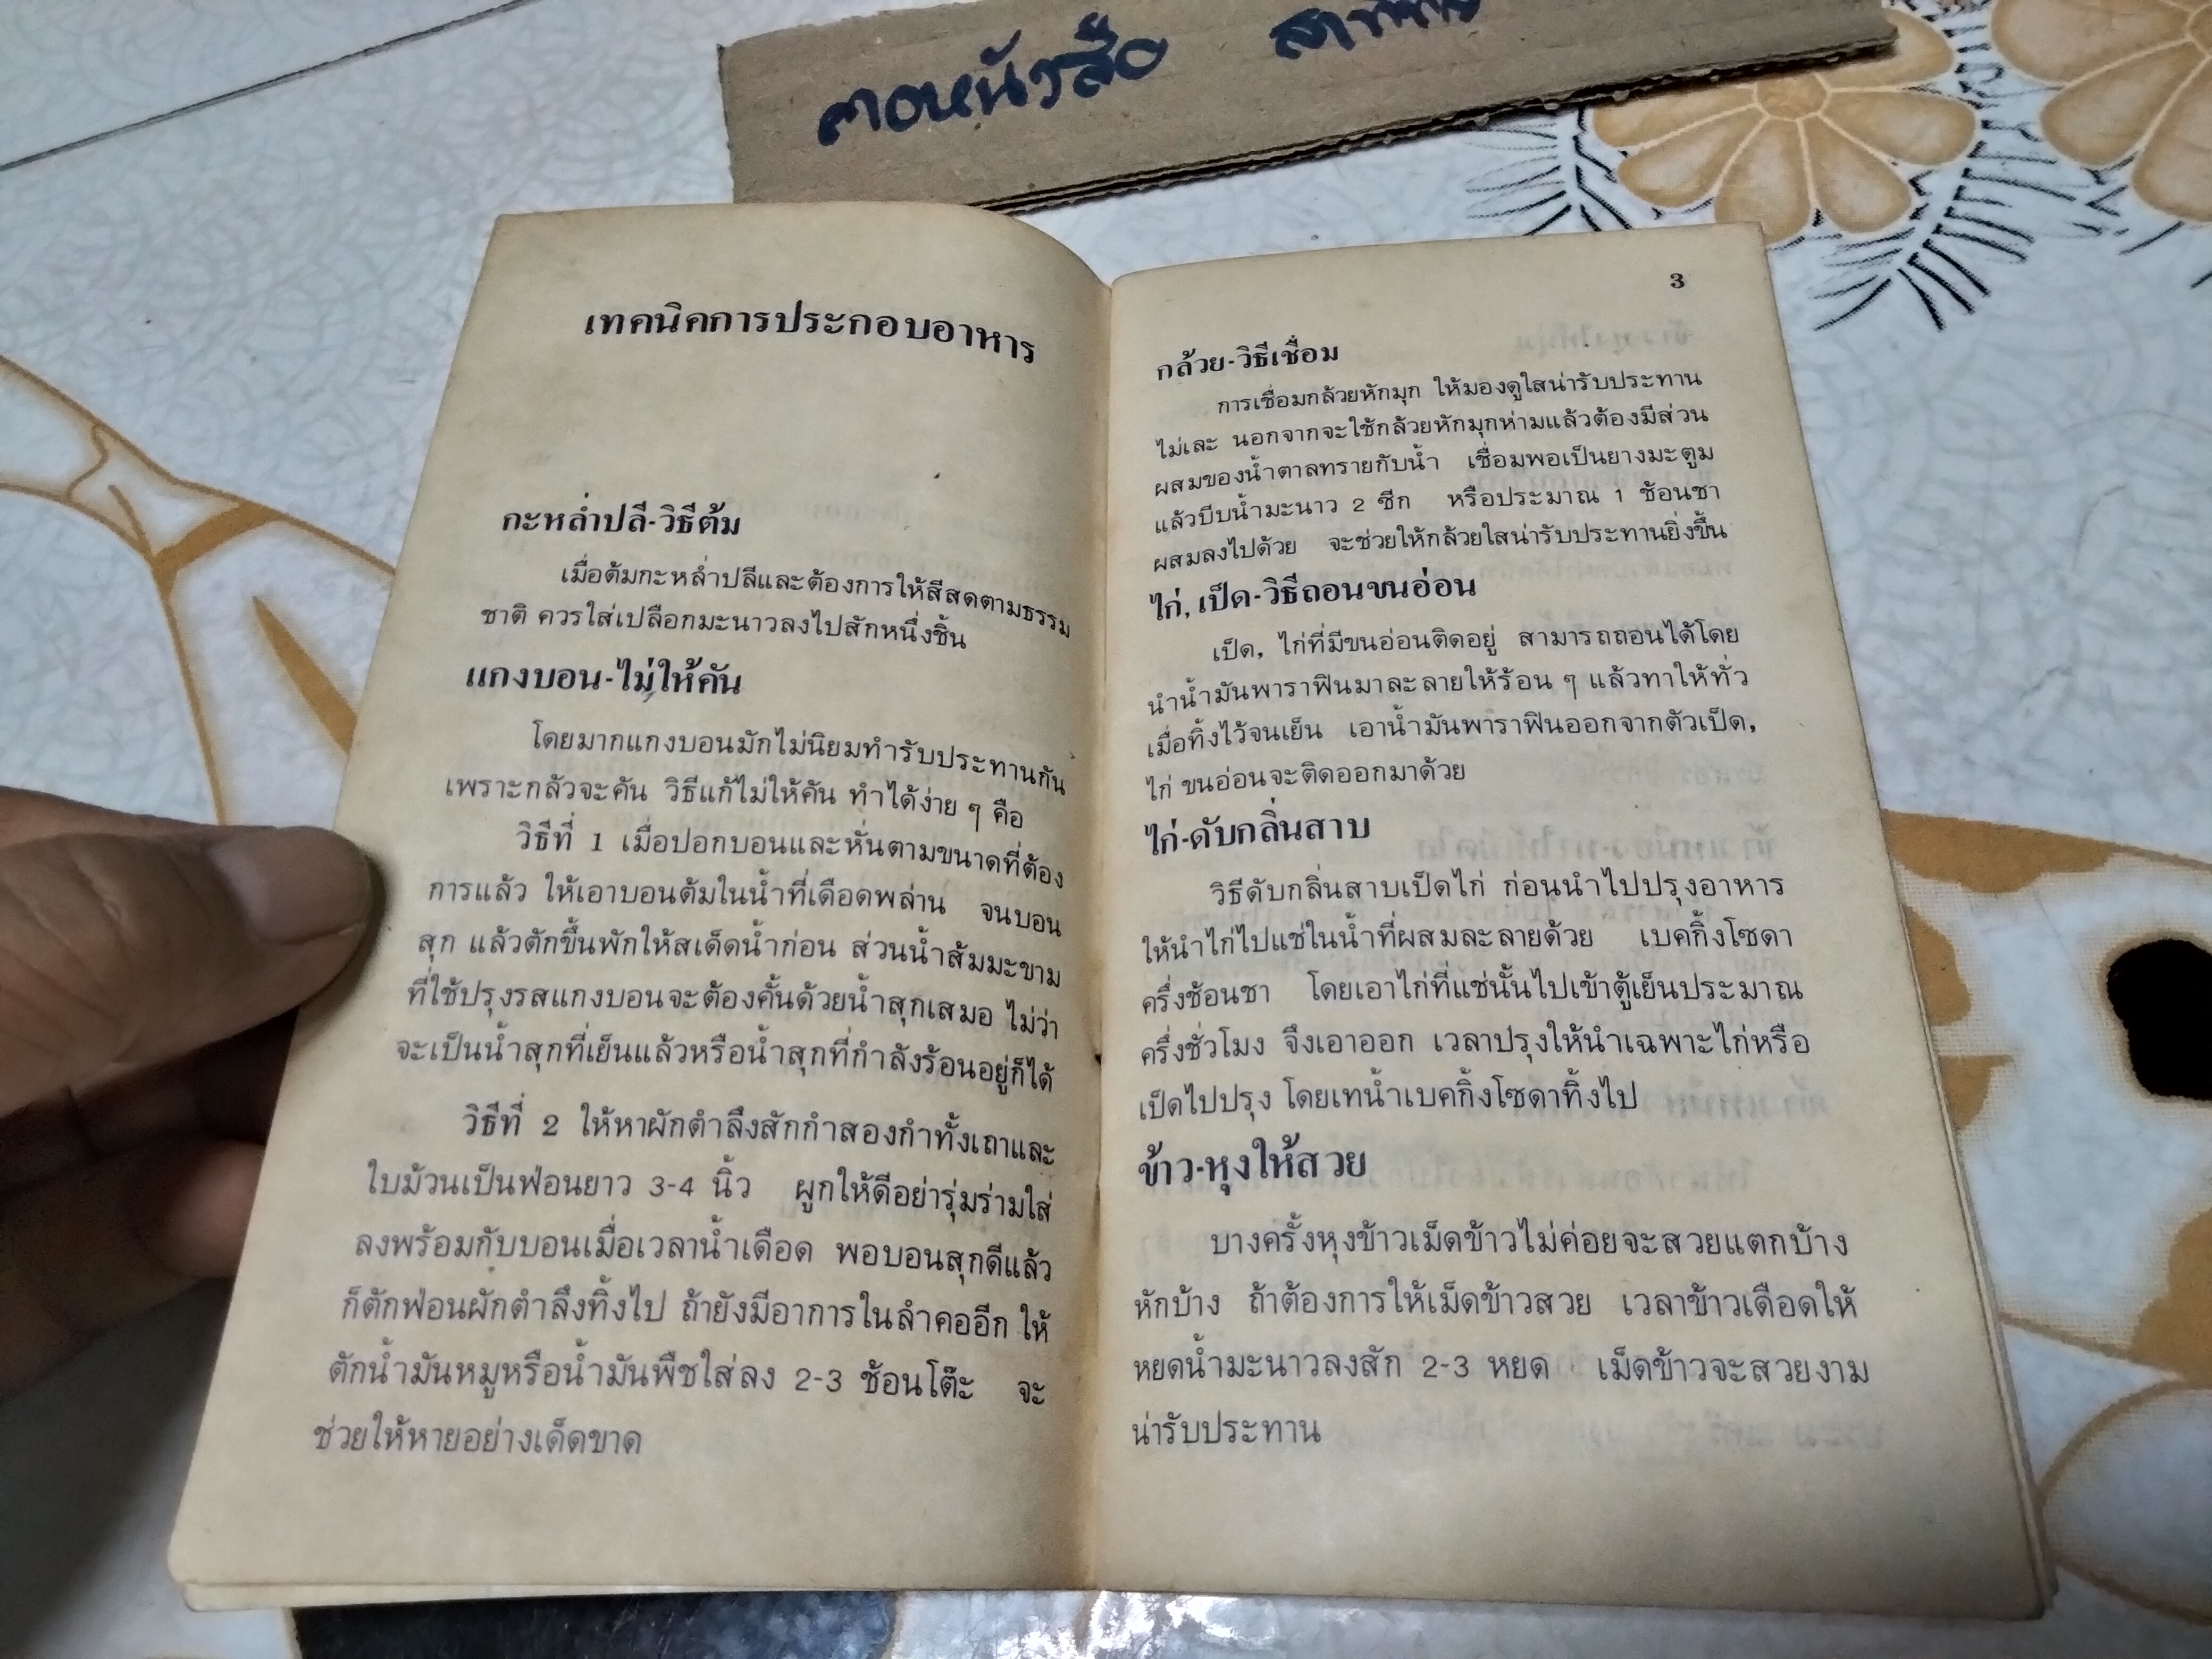 คอหนังสือ
เทคนิคการประกอบอาหาร
กะหล่ำปลี-วิธีต้ม
เมื่อต้มกะหล่ำปลีและต้องการให้สีสดตามธรรม
ชาติ ควรใส่เปลือกมะนาวลงไปสักหนึ่งชิ้น
แกงบอน-ไม่ให้คัน
โดยมากแกงบอนมักไม่นิยมทำรับประทานกัน
เพราะกลัวจะคัน วิธีแก้ไม่ให้คัน ทำได้ง่าย ๆ คือ
วิธีที่ 1 เมื่อปอกบอนและหั่นตามขนาดที่ต้อง
การแล้ว ให้เอาบอนต้มในน้ำที่เดือดพล่าน จนบอน
สุก แล้วตักขึ้นพักให้สเด็ดน้ำก่อน ส่วนน้ำส้มมะขาม
ที่ใช้ปรุงรสแกงบอนจะต้องคั้นด้วยน้ำสุกเสมอ ไม่ว่า
จะเป็นน้ำสุกที่เย็นแล้วหรือน้ำสุกที่กำลังร้อนอยู่ก็ได้
วิธีที่ 2 ให้หาผักตำลึงสักกำสองกำทั้งเถาและ
ใบม้วนเป็นฟ่อนยาว 3-4 นิ้ว ผูกให้ดีอย่ารุ่มร่ามใส่
ลงพร้อมกับบอนเมื่อเวลาน้ำเดือด พอบอนสุกดีแล้ว
ก็ตักฟ่อนผักตำลึงทิ้งไป ถ้ายังมีอาการในลำคออีก ให้
ตักน้ำมันหมูหรือน้ำมันพืชใส่ลง 2-3 ช้อนโต๊ะ จะ
ช่วยให้หายอย่างเด็ดขาด
3
กล้วย-วิธีเชื่อม
การเชื่อมกล้วยหักมุก ให้มองดูใสน่ารับประทาน
ไม่เละ นอกจากจะใช้กล้วยหักมุกห่ามแล้วต้องมีส่วน
ผสมของน้ำตาลทรายกับน้ำ เชื่อมพอเป็นยางมะตูม
แล้วบีบน้ำมะนาว 2 ซีก หรือประมาณ 1 ช้อนชา
ผสมลงไปด้วย จะช่วยให้กล้วยใสน่ารับประทานยิ่งขึ้น
ไก่, เป็ด-วิธีถอนขนอ่อน
เป็ด, ไก่ที่มีขนอ่อนติดอยู่ สามารถถอนได้โดย
นำน้ำมันพาราฟินมาละลายให้ร้อน ๆ แล้วทาให้ทั่ว
เมื่อทิ้งไว้จนเย็น เอาน้ำมันพาราฟินออกจากตัวเป็ด,
ไก่ ขนอ่อนจะติดออกมาด้วย
ไก่-ดับกลิ่นสาบ
วิธีดับกลิ่นสาบเป็ดไก่ ก่อนนำไปปรุงอาหาร
ให้นำไก่ไปแช่ในน้ำที่ผสมละลายด้วย เบคกิ้งโซดา
ครึ่งช้อนชา โดยเอาไก่ที่แช่นั้นไปเข้าตู้เย็นประมาณ
ครึ่งชั่วโมง จึงเอาออก เวลาปรุงให้นำเฉพาะไก่หรือ
เป็ดไปปรุง โดยเทน้ำเบคกิ้งโซดาทิ้งไป
ข้าว-หุงให้สวย
บางครั้งหุงข้าวเม็ดข้าวไม่ค่อยจะสวยแตกบ้าง
หักบ้าง ถ้าต้องการให้เม็ดข้าวสวย เวลาข้าวเดือดให้
หยดน้ำมะนาวลงสัก 2-3 หยด เม็ดข้าวจะสวยงาม
น่ารับประทาน